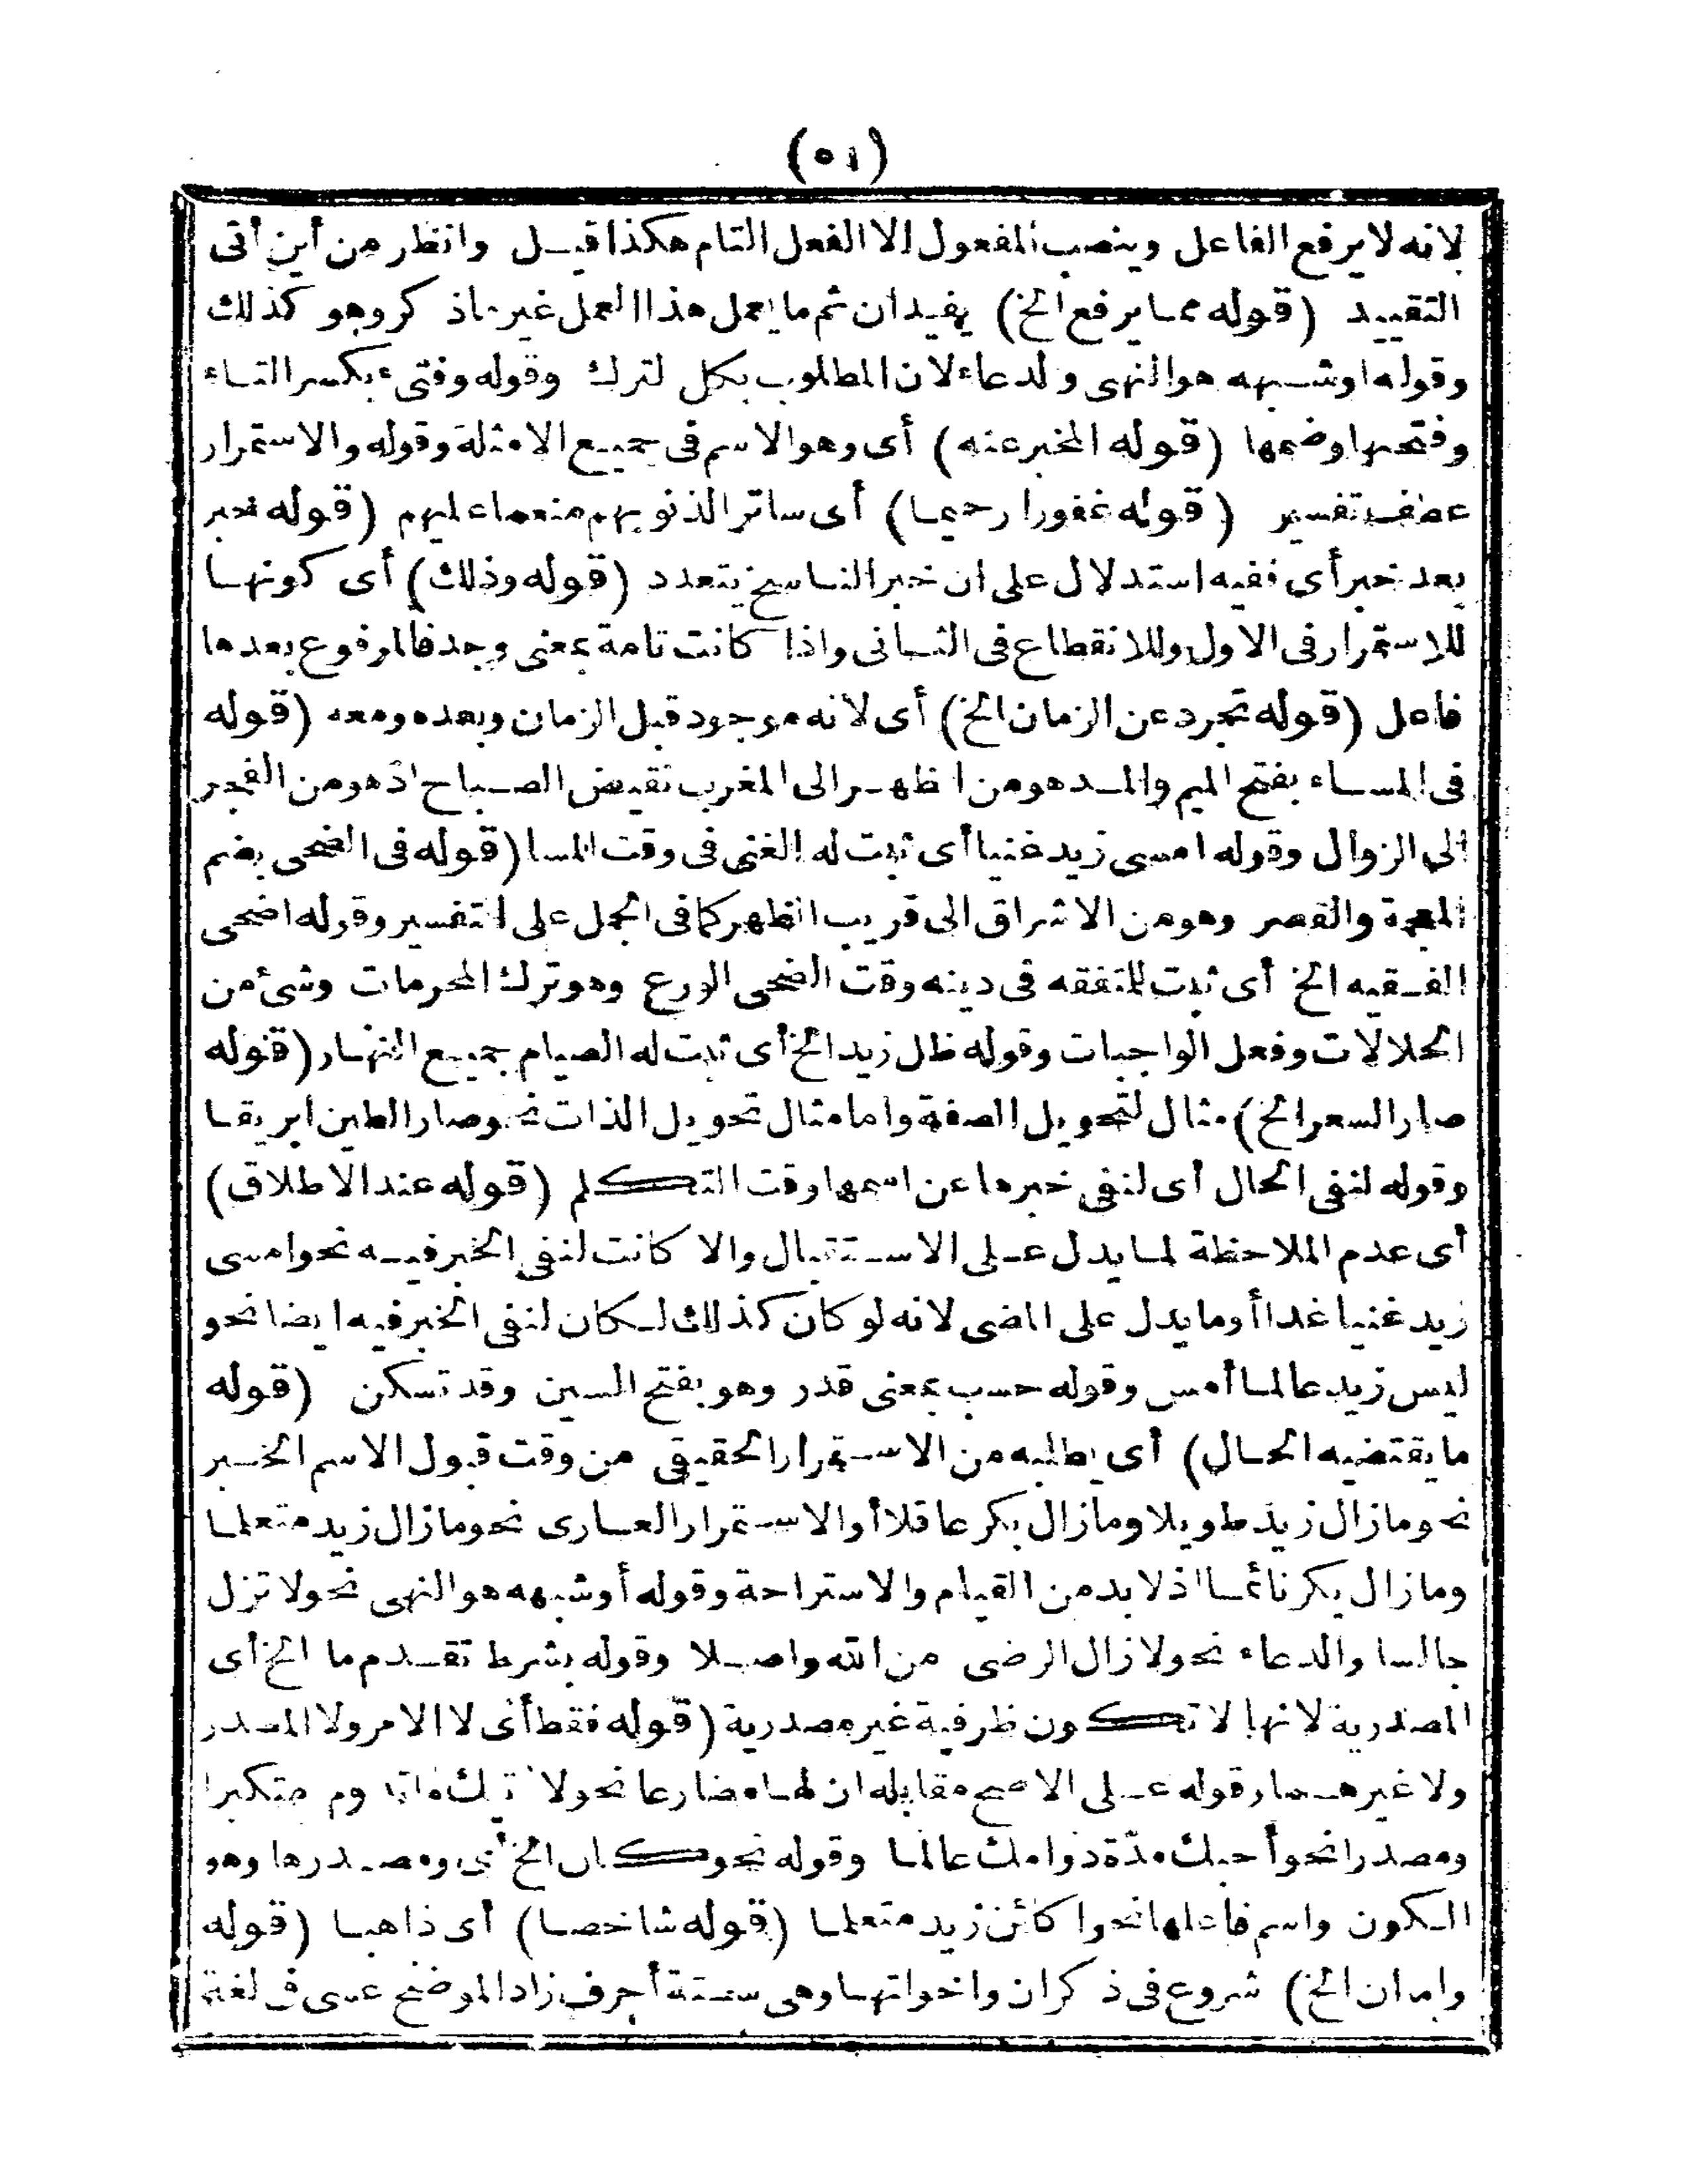 (٥١)
لانه لا يرفع الفاعل وينصب المفعول الا الفعل التام هكذا قيل وانظر من أين أتى
التقييد (قوله مما يرفع الخ) يفيد ان ثم ما يعمل هذا العمل غير ماذ كر وهو كذلك
وقوله اوشبهه هو النهى والدعاء لان المطلوب بكل الترك وقوله وفتىء بكسر التاء
وفتحها وضمها (قوله المخبر عنه) أى وهو الاسم فى جميع الامثلة وقوله والاستمرار
عطف تفسير (قوله غفورا رحيما) أى ساترا لذنوبهم منعما عليهم (قوله خبر
بعد خبر أى ففيه استدلال على ان خبر الناسخ يتعدد (قوله وذلك) أى كونها
للاستمرار فى الاول وللانقطاع فى الثانى واذا كانت تامة بمعنى وجد فالمرفوع بعدها
فاعل (قوله تجرد عن الزمان الخ) أى لانه موجود قبل الزمان وبعده ومعه (قوله
فى المساء بفتح الميم والمد هو من الظهر الى المغرب نقيض الصباح اذ هو من الفجر
الى الزوال وقوله امسى زيد غنيا أى ثبت له الغنى فى وقت المسا (قوله فى الضحى بضم
المعجمة والقصر وهو من الاشراق الى قريب الظهر كما فى الجمل على التفسير وقوله اضحى
الفقيه الخ أى ثبت للتفقه فى دينه وقت الضحى الورع وهو ترك المحرمات وشئ من
الحلالات وفعل الواجبات وقوله ظل زيد الخ أى ثبت له الصيام جميع النهار (قوله
صار السعر الخ) مثال لتحويل الصفة واما مثال تحويل الذات نحو صار الطين ابريقا
وقوله لنفى الحال أى لنفى خبرها عن اسمها وقت التكلم (قوله عند الاطلاق)
أى عدم الملاحظة لما يدل على الاستقبال والا كانت لنفى الخبر فيه نحو امسى
زيد غنيا غدا أو ما يدل على الماضى لانه لو كان كذلك لكان لنفى الخبر فيه ايضا نحو
ليس زيد عالما أمس وقوله حسب بمعنى قدر وهو بفتح السين وقد تسكن (قوله
ما يقتضيه الحال) أى يطلبه من الاستمرار الحقيقى من وقت قبول الاسم الخبر
نحو مازال زيد طويلا ومازال بكر عاقلا أو الاستمرار العارى نحو مازال زيد متعلما
ومازال بكر نائما اذ لا بد من القيام والاستراحة وقوله أو شبهه هو النهى نحو لا تزل
جالسا والدعاء نحو لا زال الرضى من الله واصلا وقوله بشرط تقدم ما الخ أى
المصدرية لانها لا تكون ظرفية غير مصدرية (قوله فقط أى لا الامر ولا المصدر
ولا غيرهما وقوله على الاصح مقابله ان لها مضارعا نحو لا وم متكبرا
ومصدرا نحو أحبك مدّة دوامك عالما وقوله نحو كان الخ أى ومصدرها وهو
الكون واسم فاعلها نحوا كائن زيد متعلما (قوله شاخصا) أى ذاهبا (قوله
واما ان الخ) شروع فى ذ كر ان واخواتها وهى ستة أحرف زاد الموضح عسى فى لغة